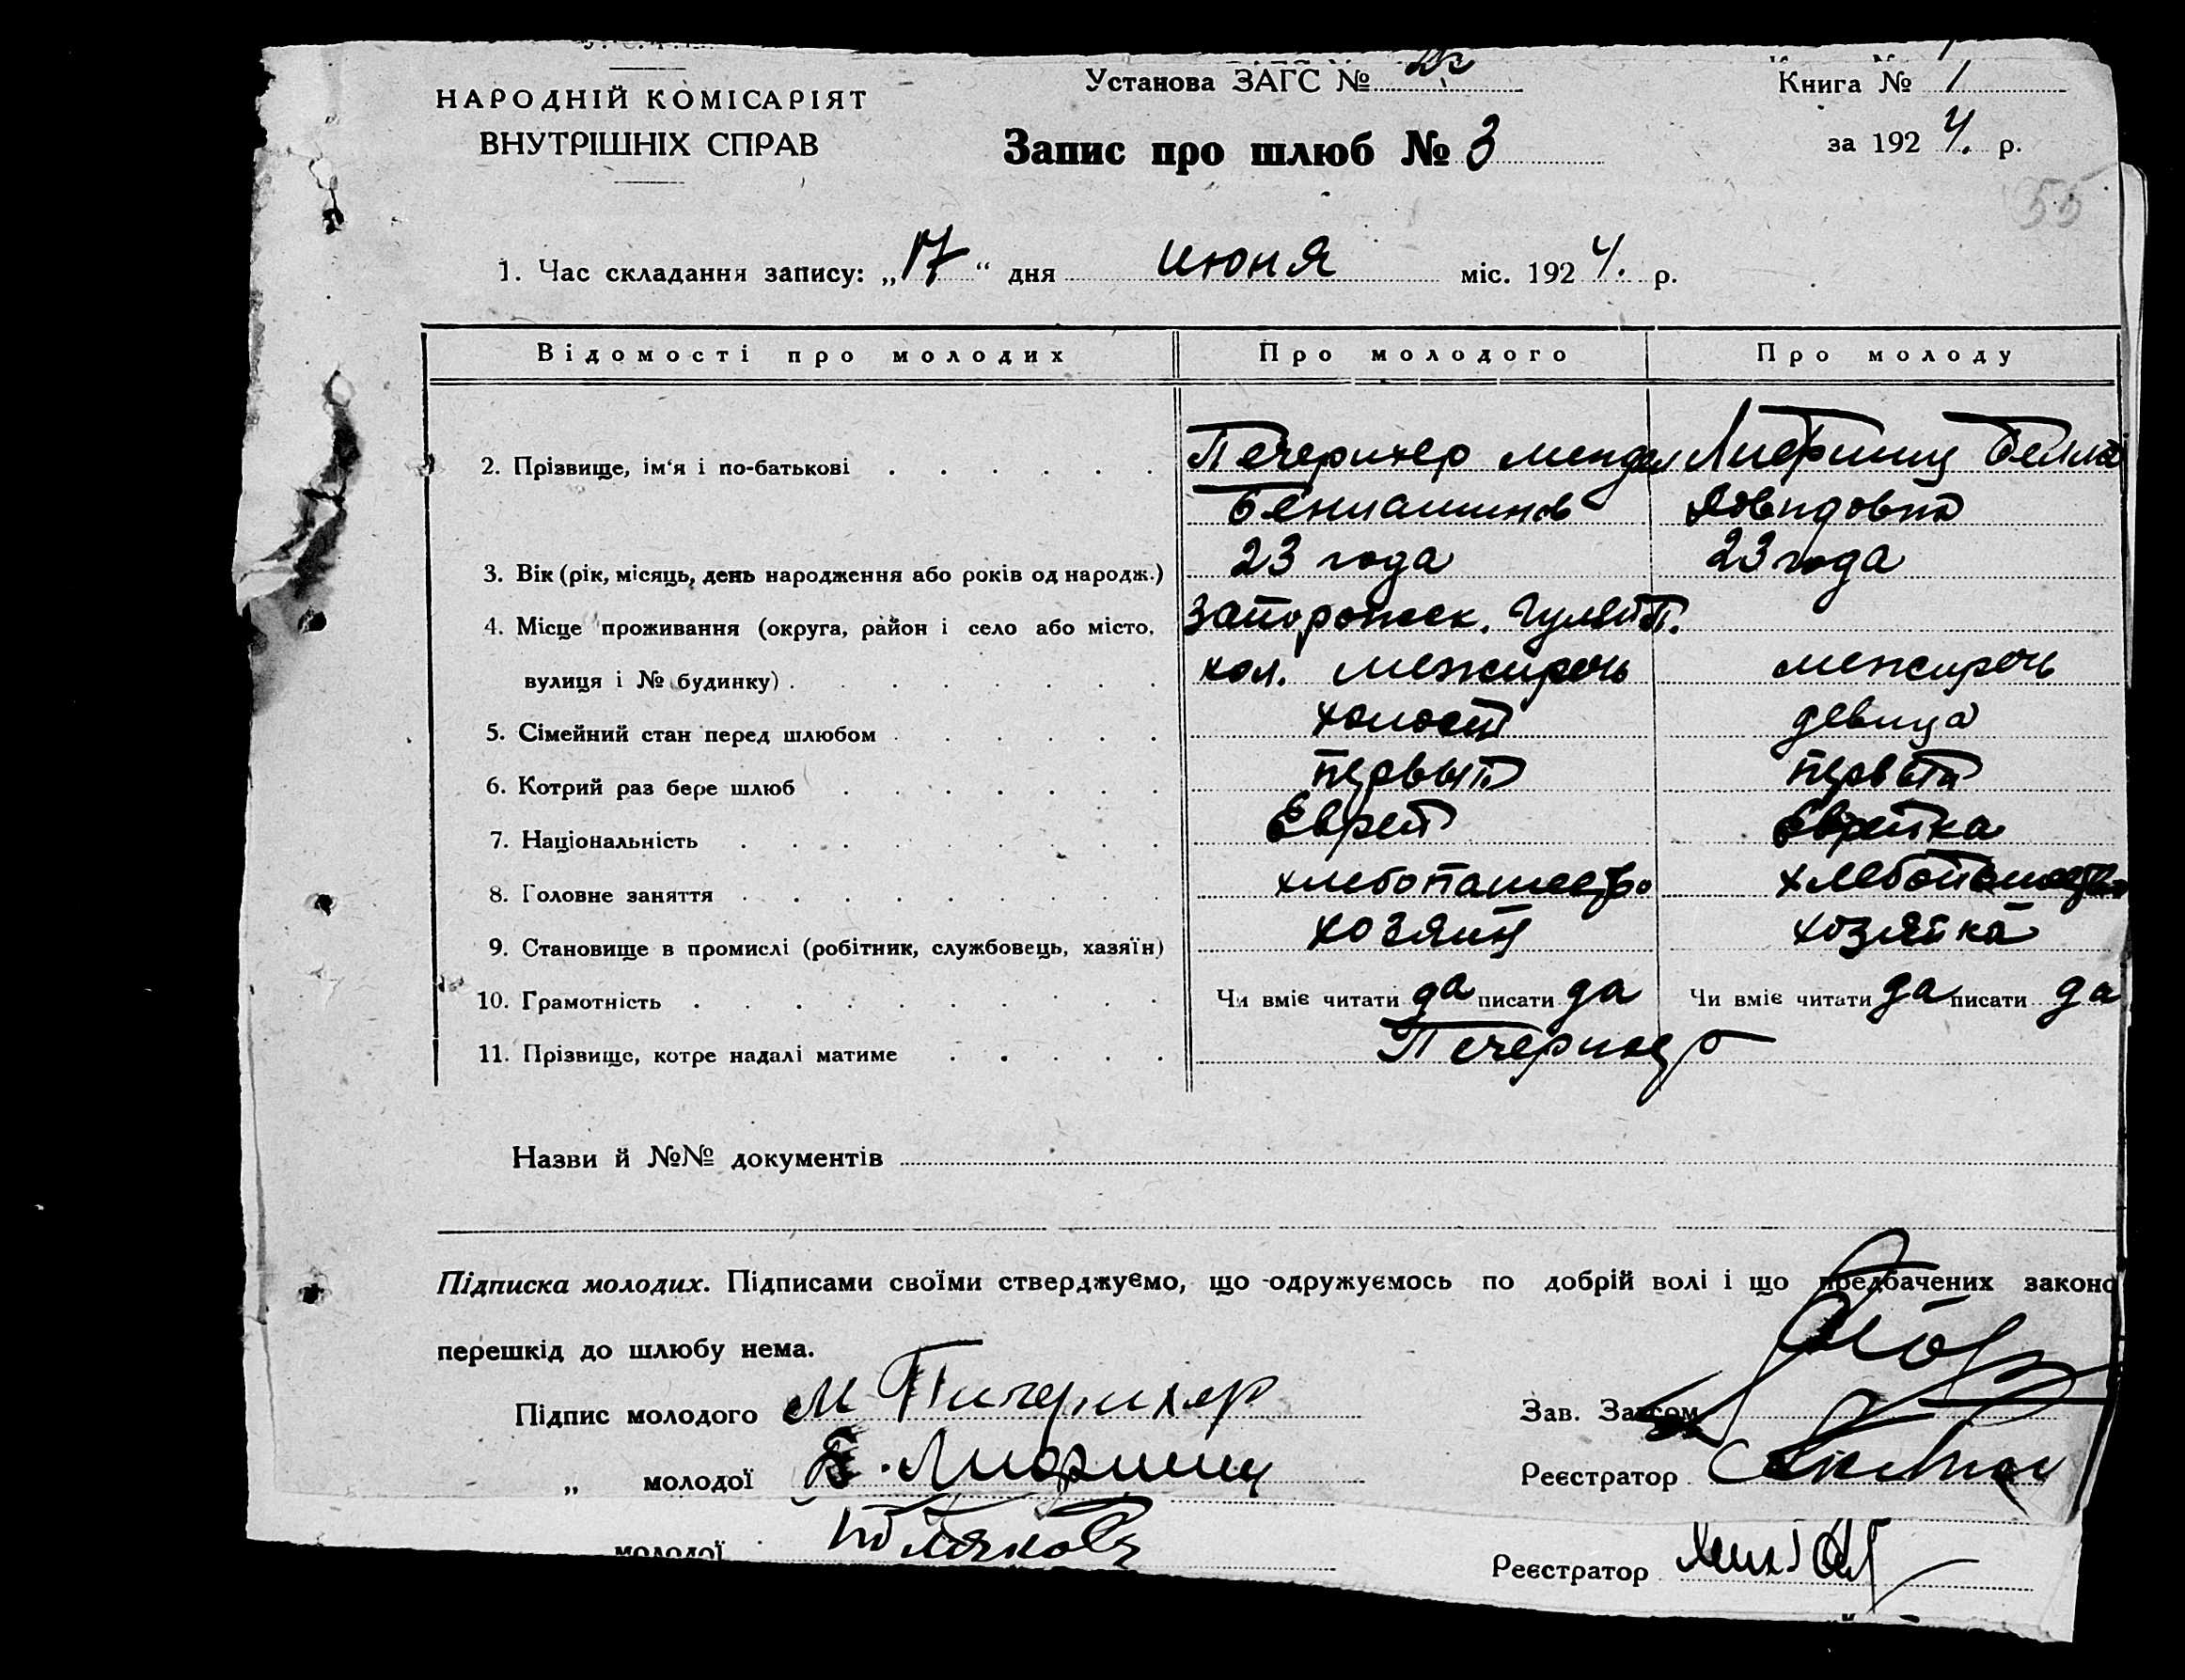 НАРОДНІЙ КОМІСАРІЯТ
ВНУТРІШНІХ СПРАВ
Установа ЗАГС №
Книга № 1
Запис про шлюб № 3
за 1924. р.
55
1. Час складання запису: „17“ дня июня міс. 1924. р.
Відомості про молодих Про молодого Про молоду
2. Прізвище, ім'я і по-батькові Печерихер Мендел Лифшиц Белла
Бениаминов Довидовна
3. Вік (рік, місяць, день народження або років од народж.) 23 года 23 года
4. Місце проживання (округа, район і село або місто, Запорожск. Гуляйп.
вулиця і № будинку) кол. Межиречь межиречь
5. Сімейний стан перед шлюбом холост девица
6. Котрий раз бере шлюб первый первый
7. Національність Еврей Еврейка
8. Головне заняття хлебопашество хлебопашество
9. Становище в промислі (робітник, службовець, хазяїн) хозяин хозяйка
10. Грамотність Чи вміє читати да писати да Чи вміє читати да писати да
11. Прізвище, котре надалі матиме Печерихер
Назви й №№ документів
Підписка молодих. Підписами своїми стверджуємо, що одружуємось по добрій волі і що предбачених законо
перешкід до шлюбу нема.
Підпис молодого М Пичерихер Зав. Загсом
„ молодої Б. Лифшиц Реєстратор
молодої Реєстратор